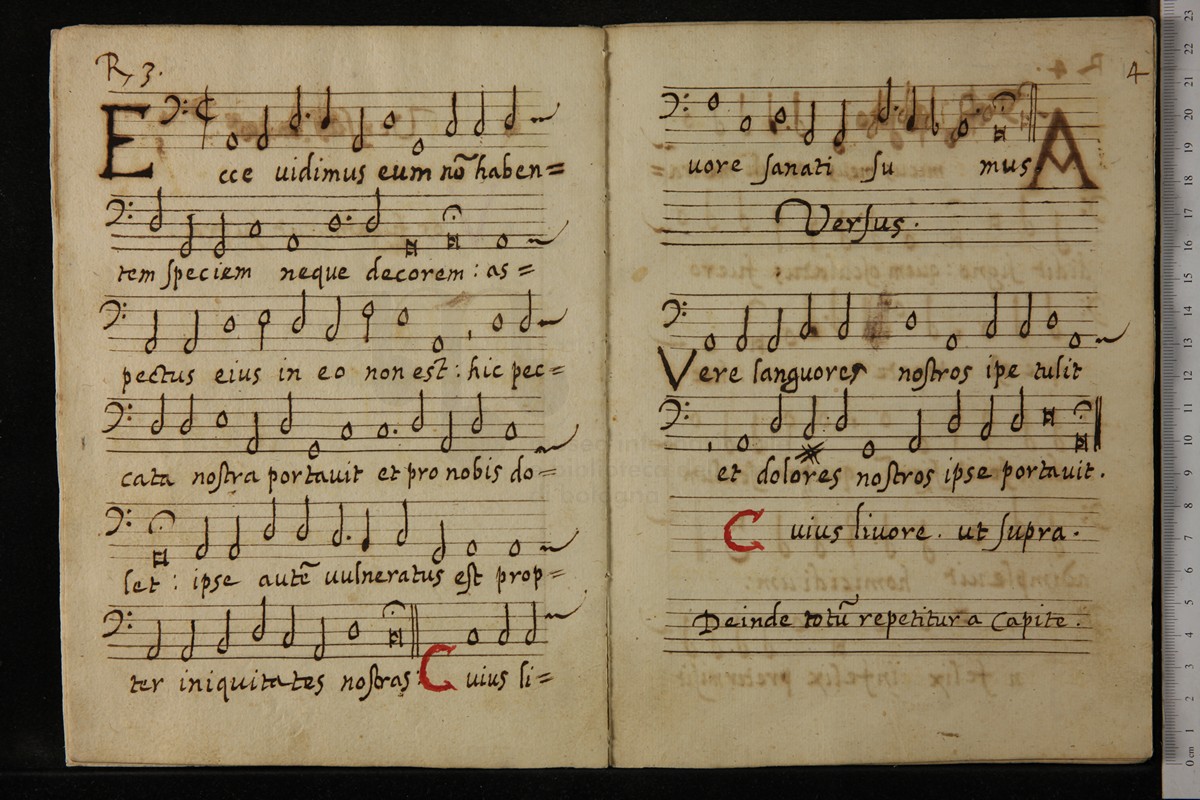 R, 3.
Ecce uidimus eum nō haben=
tem speciem neque decorem : as =
pectus eius in eo non est : hic pec=
cata nostra portauit et pro nobis do=
let : ipse autē uulneratus est prop=
ter iniquitates nostras : Cuius li=
4
uore sanati su mus.
Versus.
Vere languores nostros ipe tulit
et dolores nostros ipse portauit.
Cuius liuore. ut supra.
Deinde totū repetitur a Capite.